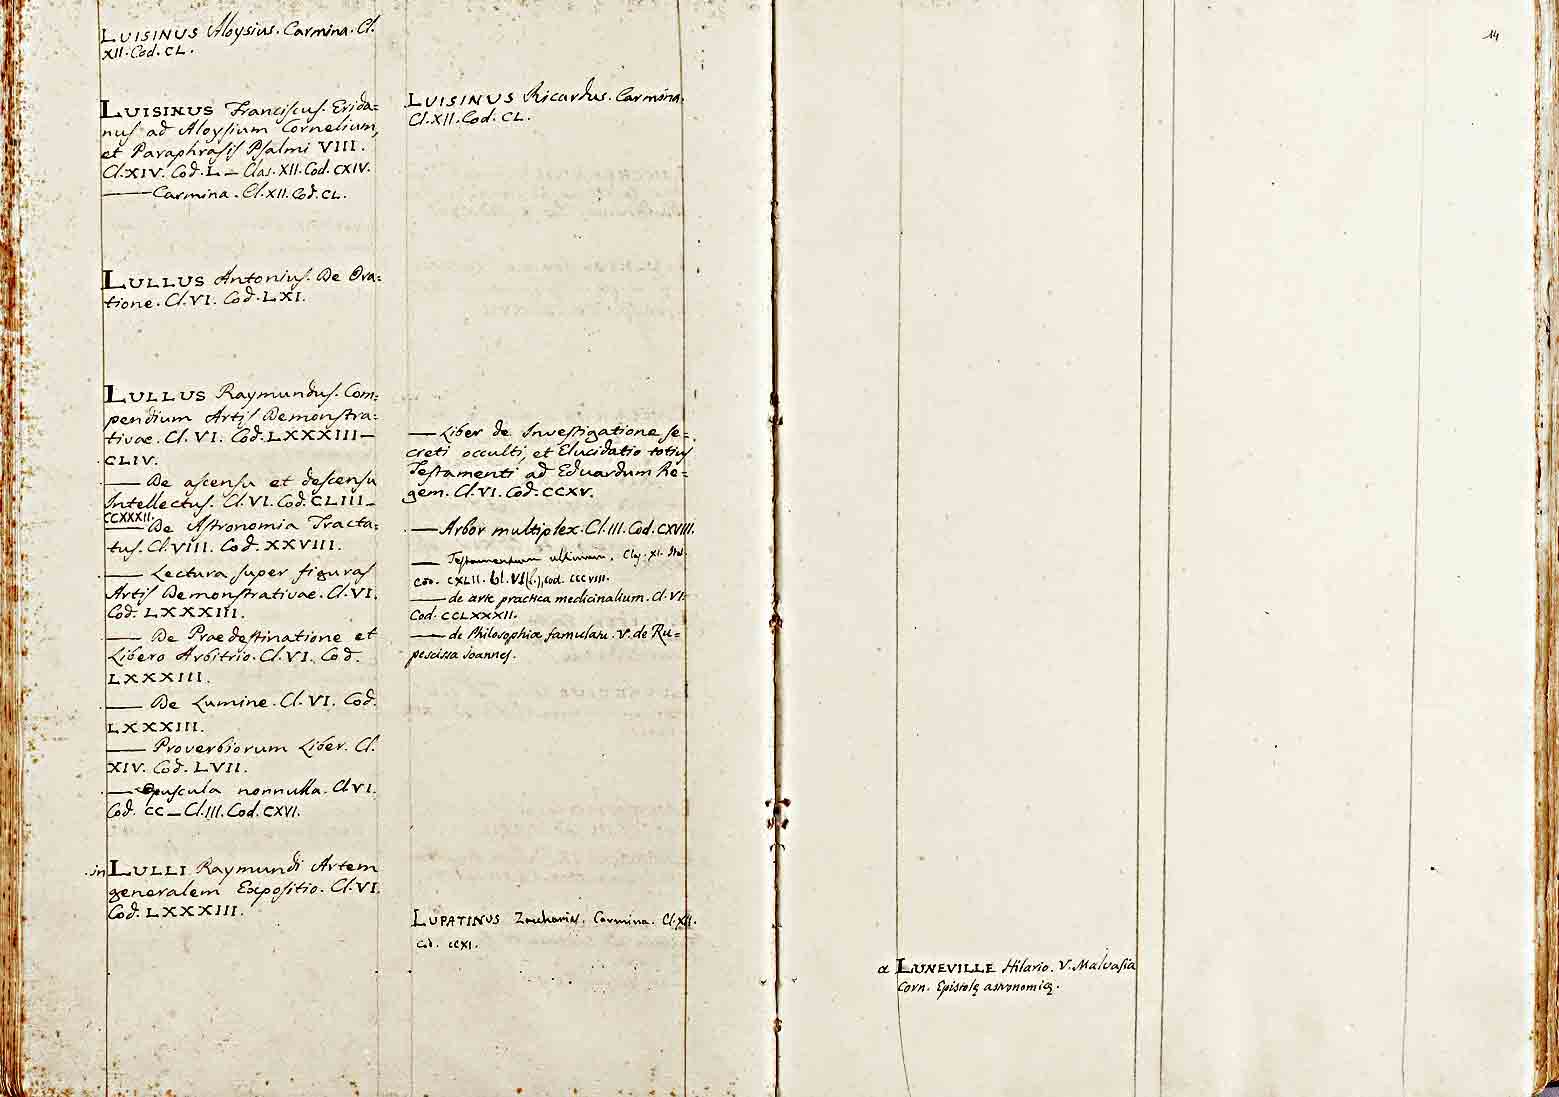 LUISINUS Aloysius. Carmina. Cl.
XII. Cod. CL.
LUISINUS Franciscus. Erida=
nus ad Aloysium Cornelium,
et Paraphrasis Psalmi VIII.
Cl. XIV. Cod. L — Clas. XII. Cod. CXIV.
—— Carmina. Cl. XII. Cod. CL.
LULLUS Antonius. De Ora=
tione. Cl. VI. Cod. LXI.
LULLUS Raymundus. Com=
pendium Artis Demonstra=
tivae. Cl. VI. Cod. LXXXIII —
CLIV.
—— De ascensu et descensu
Intellectus. Cl. VI. Cod. CLIII —
CCXXXII.
—— De Astronomia Tracta=
tus. Cl. VIII. Cod. XXVIII.
—— Lectura super figuras
Artis Demonstrativae. Cl. VI.
Cod. LXXXIII.
—— De Praedestinatione et
Libero Arbitrio. Cl. VI. Cod.
LXXXIII.
—— De Lumine. Cl. VI. Cod.
LXXXIII.
—— Proverbiorum Liber. Cl.
XIV. Cod. LVII.
—— Opuscula nonnulla. Cl. VI.
Cod. CC — Cl. III. Cod. CXVI.
in LULLI Raymundi Artem
generalem Expositio. Cl. VI.
Cod. LXXXIII.
LUISINUS Ricardus. Carmina.
Cl. XII. Cod. CL.
—— Liber de Investigatione se=
creti occulti, et Elucidatio totius
Testamenti ad Eduardum Re=
gem. Cl. VI. Cod. CCXV.
—— Arbor multiplex. Cl. III. Cod. CXVIII.
—— Testamentum ultimum. Clas. XI. Ital.
Cod. CXLII. Cl. VI cod. CCCVIII.
—— de arte practica medicinalium. Cl. VI.
Cod. CCLXXXII.
—— de Philosophiæ famulatu. V. de Ru=
pescissa Joannes.
LUPATINUS Zacharias. Carmina. Cl. XII.
Cod. CCXI.
14
a LUNEVILLE Hilario. V. Malvasia
Corn. Epistolę astronomicę.